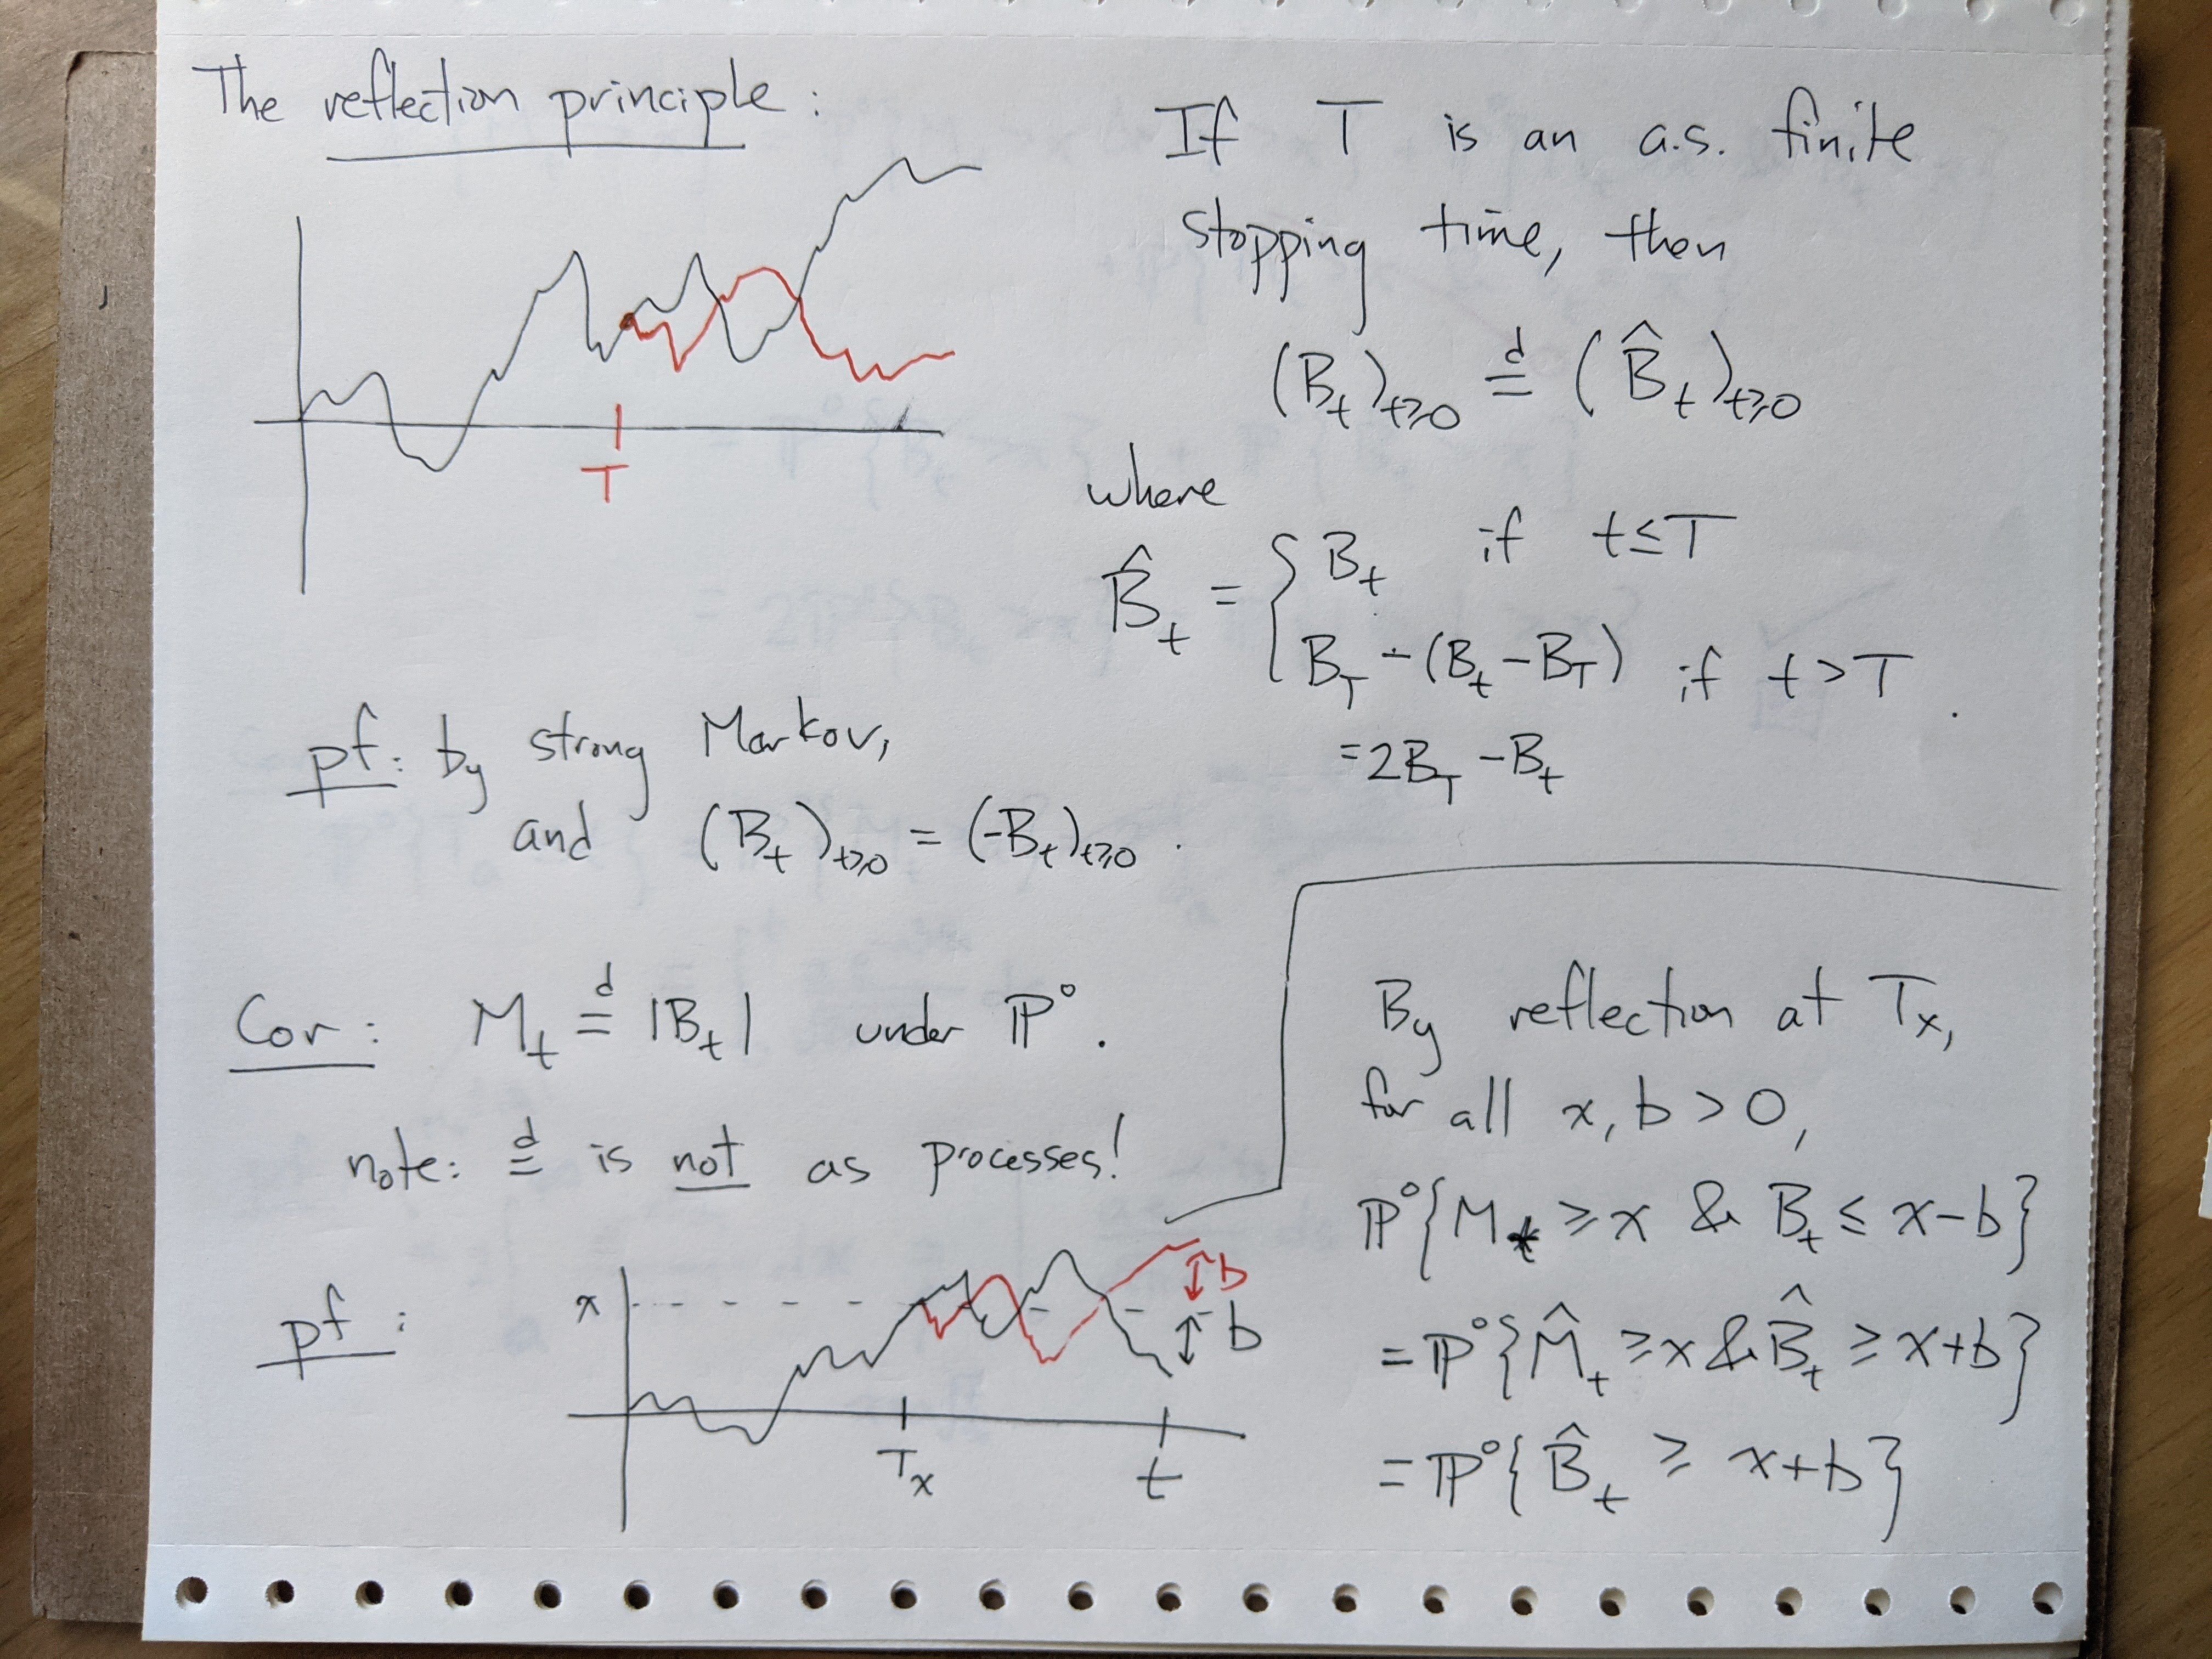 The reflection principle:
T
If T is an a.s. finite
stopping time, then
(B_t)_{t≥0} =^d (B̂_t)_{t≥0}
where
B̂_t = { B_t if t ≤ T
B_T - (B_t - B_T) if t > T.
= 2B_T - B_t
pf: by strong Markov,
and (B_t)_{t≥0} = (-B_t)_{t≥0}.
Cor: M_t =^d |B_t| under ℙ°.
note: =^d is not as processes!
pf:
x
b
b
T_x
t
By reflection at T_x,
for all x, b > 0,
ℙ°{M_t ≥ x & B_t ≤ x-b}
= ℙ°{M̂_t ≥ x & B̂_t ≥ x+b}
= ℙ°{B̂_t ≥ x+b}